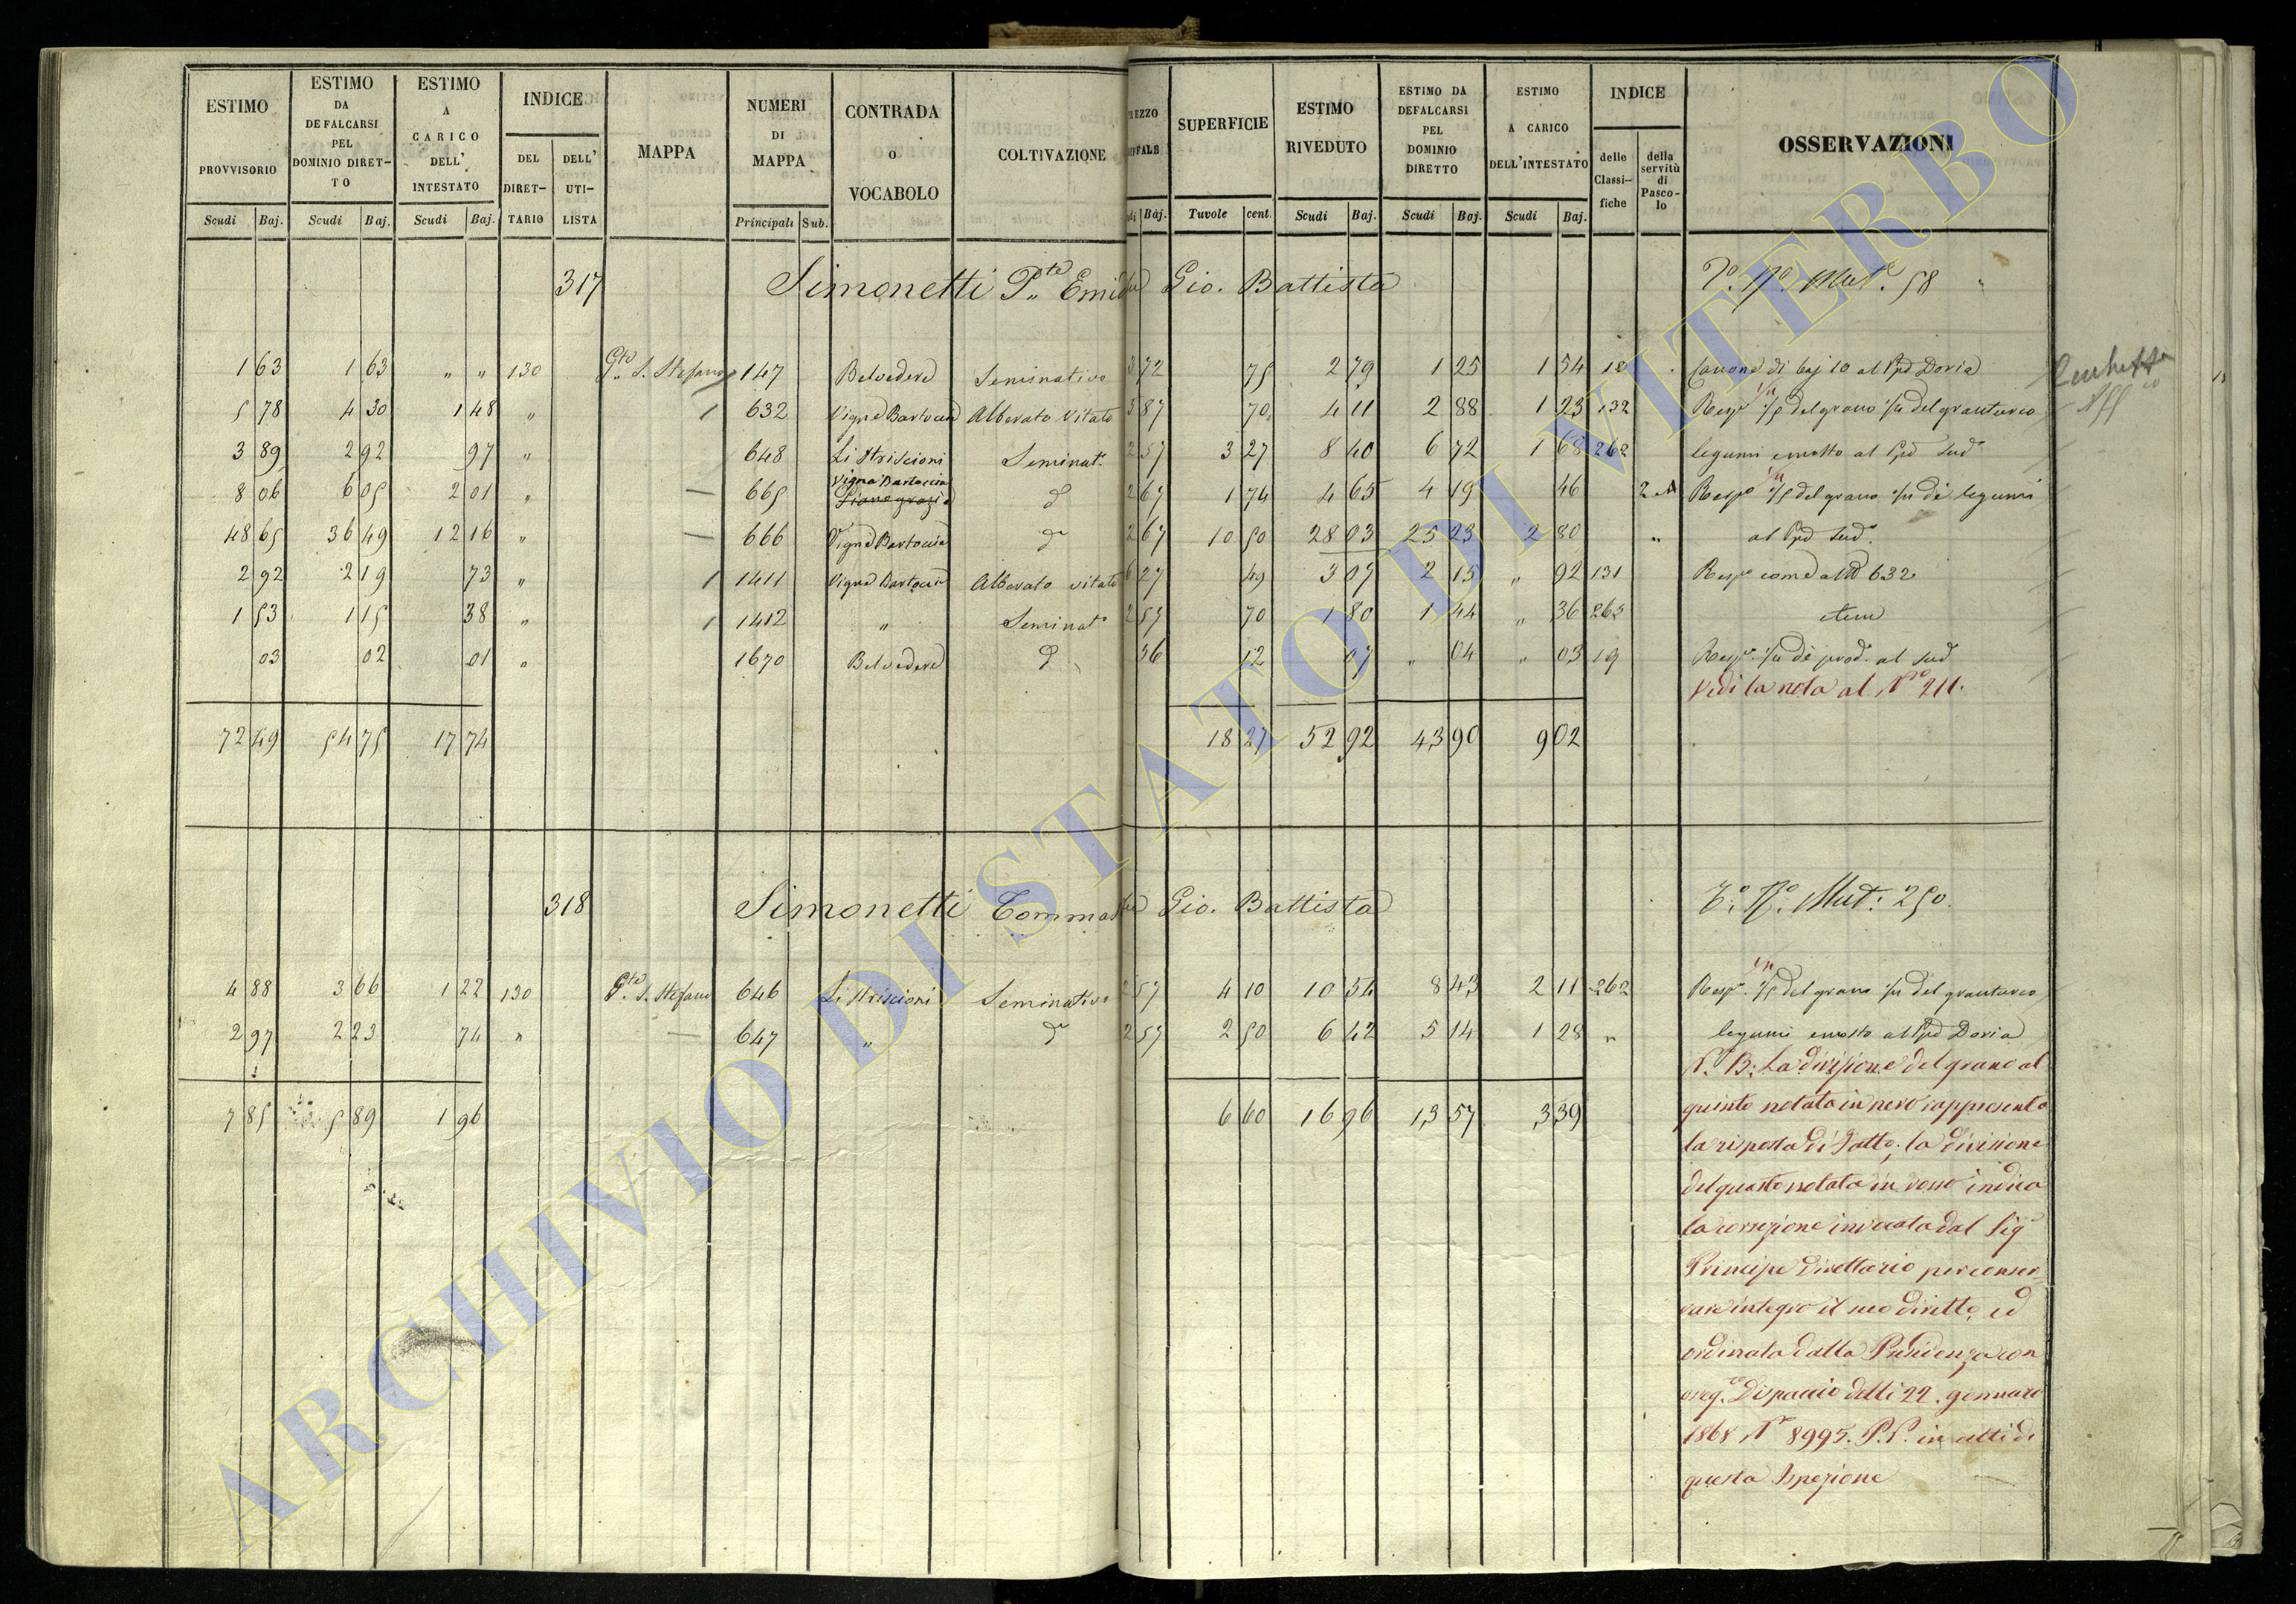 ESTIMO PROVVISORIO Scudi Baj.
ESTIMO DA DEFALCARSI PEL DOMINIO DIRETTO Scudi Baj.
ESTIMO A CARICO DELL' INTESTATO Scudi Baj.
INDICE DEL DIRETTARIO DELL' UTILISTA
MAPPA
NUMERI DI MAPPA Principali Sub.
CONTRADA O VOCABOLO
COLTIVAZIONE
SUPERFICIE Tavole cent.
ESTIMO RIVEDUTO Scudi Baj.
ESTIMO DA DEFALCARSI PEL DOMINIO DIRETTO Scudi Baj.
ESTIMO A CARICO DELL'INTESTATO Scudi Baj.
INDICE delle Classifiche della servitù di Pascolo
OSSERVAZIONI
317 Simonetti Gio. Battista Mut. 58
1 63 1 63 " " 130 S. Stefano 147 Belvedere Seminativo 3 72 75 2 79 1 25 1 54 18 Canone di baj 10 al Doria
5 78 4 30 1 48 " 632 Vigna Bartoccia Alberato vitato 5 87 70 4 11 2 88 1 23 132 1/5 del grano 1/4 del granturco
3 89 2 92 97 " 648 Li Striscioni Seminat. 2 57 3 27 8 40 6 72 1 68 262 legumi e mosto al Sud
Vigna Bartoccia
8 06 6 05 2 01 " 665 2 67 1 74 4 65 4 19 46 2 A 1/5 del grano 1/4 di legumi
48 65 36 49 12 16 " 666 Vigna Bartoccia 2 67 10 50 28 03 25 23 2 80 " al Sud.
2 92 2 19 73 " 1411 Vigna Bartoccia Alberato vitato 6 27 49 3 07 2 15 " 92 131 come al N 632
1 53 1 15 38 " 1412 " Seminat 2 57 70 1 80 1 44 " 36 262 idem
03 02 01 " 1670 Belvedere 56 12 07 " 04 " 03 19 1/4 di prod. al Sud
Vedi la nota al N° 211.
72 49 54 75 17 74 18 27 52 92 43 90 9 02
318 Simonetti Gio. Battista Mut: 250.
4 88 3 66 1 22 130 S. Stefano 646 Li Striscioni Seminativo 2 57 4 10 10 54 8 43 2 11 262 1/5 del grano 1/4 del granturco
2 97 2 23 74 " 647 " 2 57 2 50 6 42 5 14 1 28 " legumi e mosto al Doria
N. B: La divisione del grano al
7 85 5 89 1 96 6 60 16 96 13 57 3 39 quinto notata in nero rappresenta
la risposta di fatto; la divisione
del quarto notata in rosso indica
la correzione invocata dal Sig
Principe Direttario per conser-
vare integro il suo diretto, ed
ordinata dalla Presidenza con
Dispaccio delli 22. gennaro
1868 N° 8995. P.P. in atti di
questa Ispezione
ARCHIVIO DI STATO DI VITERBO